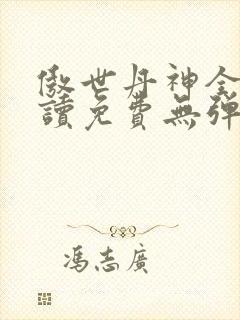 傲世丹神全
讀免費無彈
馮志廣